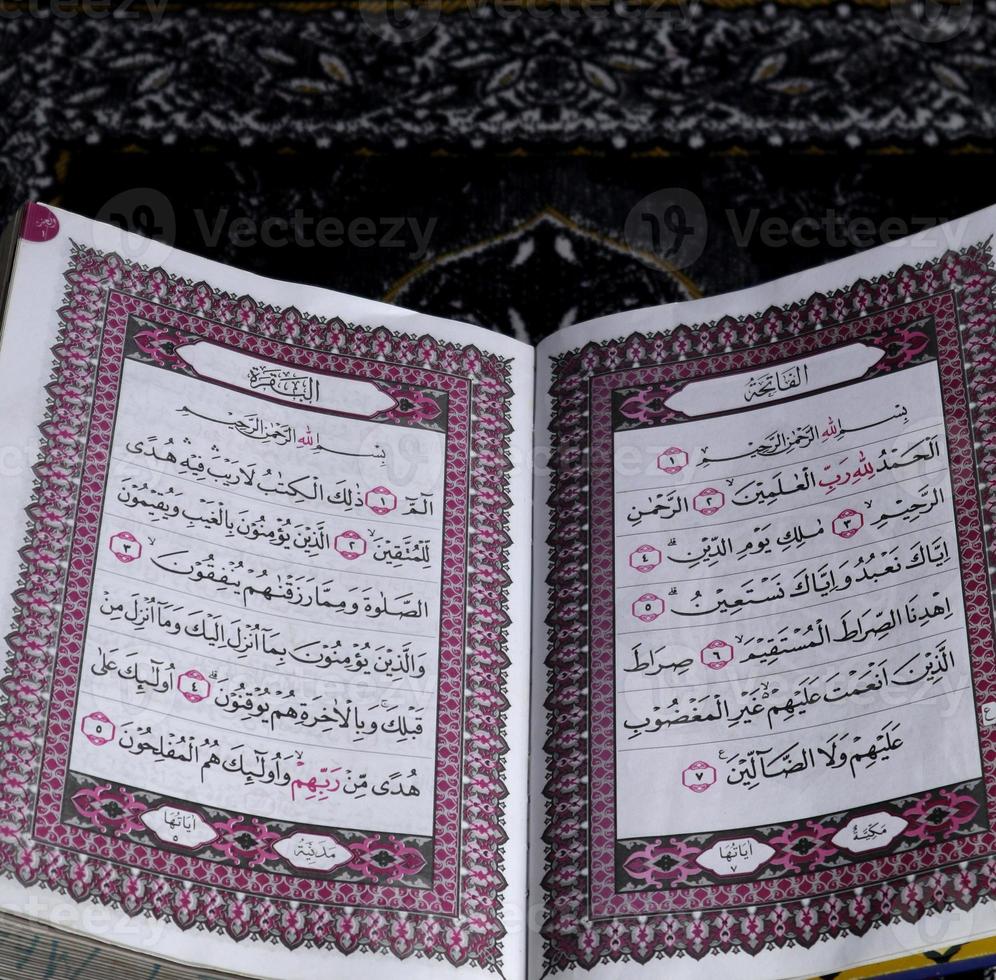 الفَاتِحَةُ
بِسْمِ اللهِ الرَّحْمٰنِ الرَّحِيْمِ ١
اَلْحَمْدُ لِلّٰهِ رَبِّ الْعٰلَمِيْنَۙ ٢ الرَّحْمٰنِ
الرَّحِيْمِۙ ٣ مٰلِكِ يَوْمِ الدِّيْنِۗ ٤
اِيَّاكَ نَعْبُدُ وَاِيَّاكَ نَسْتَعِيْنُۗ ٥
اِهْدِنَا الصِّرَاطَ الْمُسْتَقِيْمَۙ ٦ صِرَاطَ
الَّذِيْنَ اَنْعَمْتَ عَلَيْهِمْ ەۙ غَيْرِ الْمَغْضُوْبِ
عَلَيْهِمْ وَلَا الضَّاۤلِّيْنَ ࣖ ٧
مَكِّيَّةٌ
اٰيَاتُهَا ٧
البَقَرَة
بِسْمِ اللهِ الرَّحْمٰنِ الرَّحِيْمِ
الۤمّۤ ١ ذٰلِكَ الْكِتٰبُ لَا رَيْبَۛ فِيْهِۛ هُدًى
لِّلْمُتَّقِيْنَۙ ٢ الَّذِيْنَ يُؤْمِنُوْنَ بِالْغَيْبِ وَيُقِيْمُوْنَ
الصَّلٰوةَ وَمِمَّا رَزَقْنٰهُمْ يُنْفِقُوْنَۙ ٣
وَالَّذِيْنَ يُؤْمِنُوْنَ بِمَآ اُنْزِلَ اِلَيْكَ وَمَآ اُنْزِلَ مِنْ
قَبْلِكَۚ وَبِالْاٰخِرَةِ هُمْ يُوْقِنُوْنَۗ ٤ اُولٰۤىِٕكَ عَلٰى
هُدًى مِّنْ رَّبِّهِمْۙ وَاُولٰۤىِٕكَ هُمُ الْمُفْلِحُوْنَ ٥
مَدَنِيَّةٌ
اٰيَاتُهَا ٥
Vecteezy
Vecteezy
Vecteezy
Vecteezy